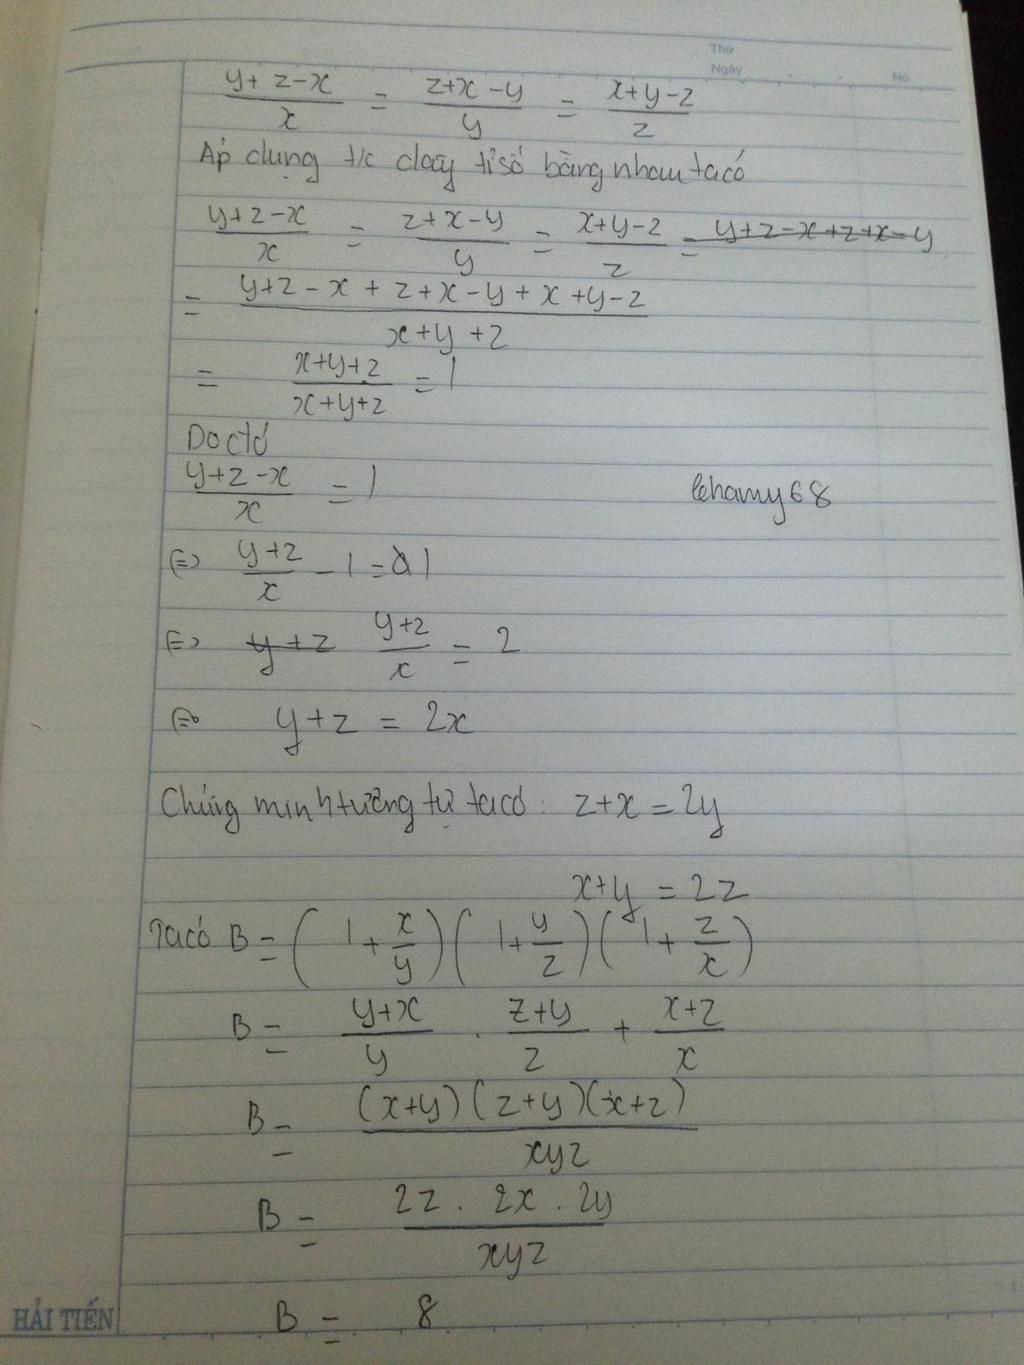 Thứ
Ngày No.
y+z-x/x = z+x-y/y = x+y-z/z
Áp dụng t/c dãy tỉ số bằng nhau ta có
y+z-x/x = z+x-y/y = x+y-z/z = y+z-x+z+x-y
= y+z-x+z+x-y+x+y-z/x+y+z
= x+y+z/x+y+z = 1
Do đó
y+z-x/x = 1
lehamy68
<=> y+z/x - 1 = 1
<=> y+z y+z/x = 2
<=> y+z = 2x
Chứng minh tương tự ta có: z+x = 2y
x+y = 2z
Ta có B = (1 + x/y)(1 + y/z)(1 + z/x)
B = y+x/y . z+y/z + x+z/x
B = (x+y)(z+y)(x+z)/xyz
B = 2z . 2x . 2y/xyz
B = 8
HẢI TIẾN